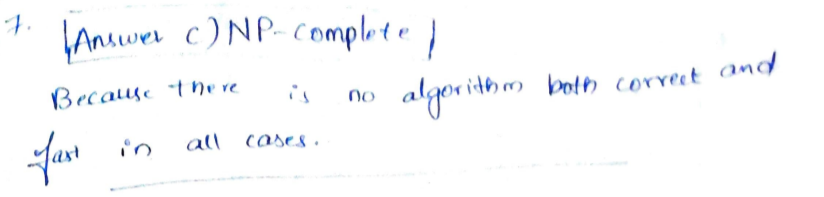 7. [Answer c) NP-Complete]
Because there is no algorithm both correct and
fast in all cases.